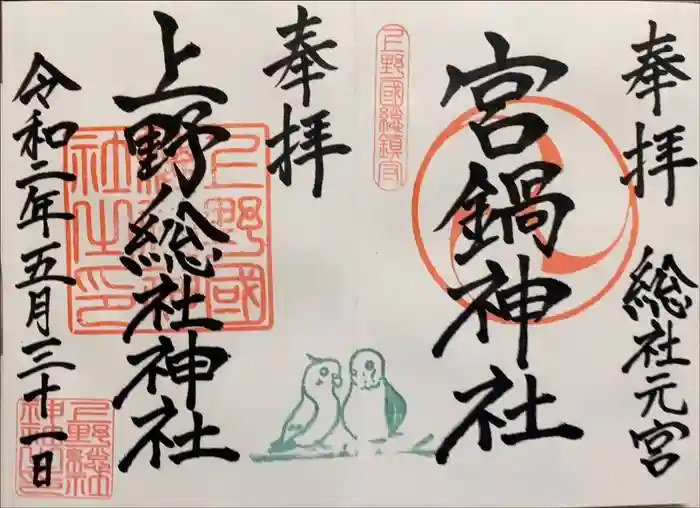 奉拝
総社元宮
宮鍋神社
上野國総鎮守
奉拝
上野総社神社
上野國
総社神
社之印
令和二年五月三十一日
上野総社
神社之印